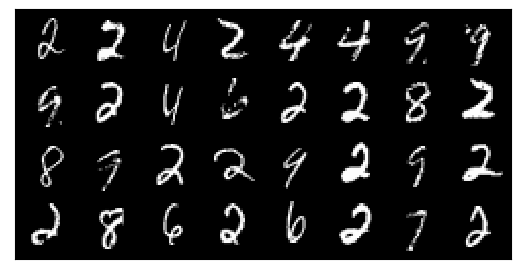 2 2 4 2 4 4 9 9
9 2 4 6 2 2 8 2
8 9 2 2 9 2 9 2
2 8 6 2 6 2 7 2